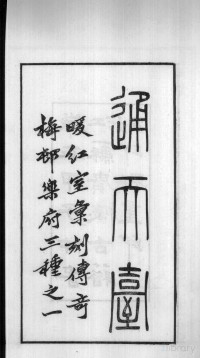 通天臺
暖紅室彙刻傳奇
梅邨樂府三種之一